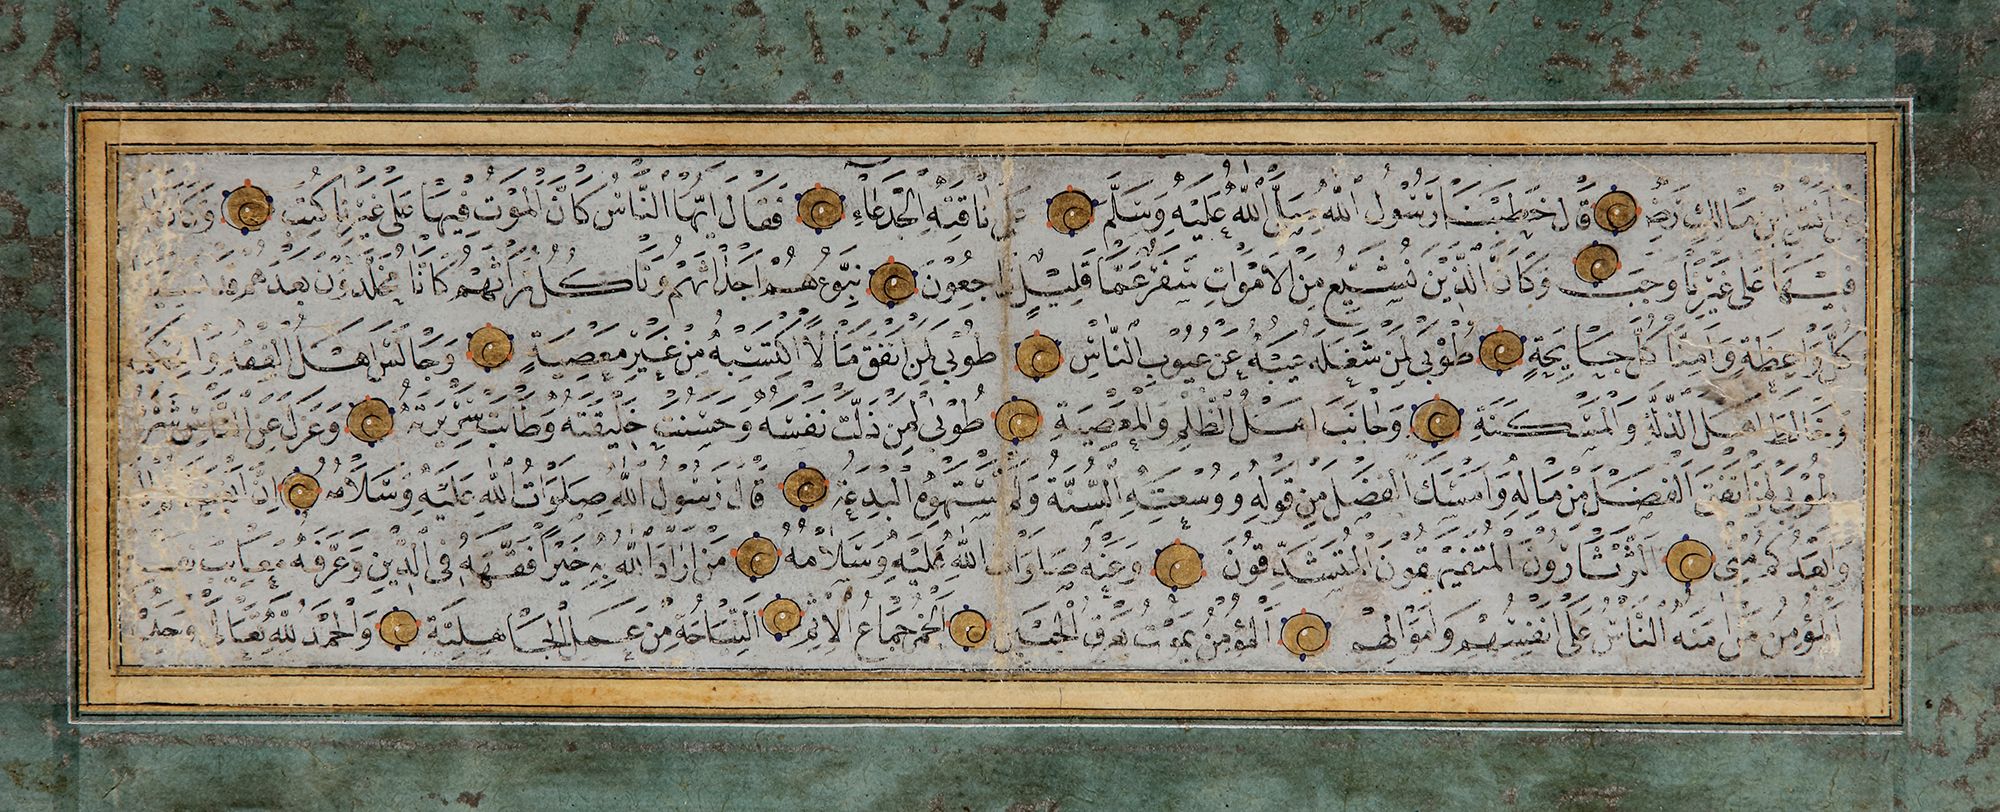 عَنْ أَنَسِ بْنِ مَالِكٍ رَضِ قَالَ خَطَبَنَا رَسُولُ اللّٰهِ صَلَّى اللّٰهُ عَلَيْهِ وَسَلَّمَ عَلَى نَاقَتِهِ الْجَدْعَاءِ فَقَالَ أَيُّهَا النَّاسُ كَأَنَّ الْمَوْتَ فِيهَا عَلَى غَيْرِنَا كُتِبَ وَكَأَنَّ
فِيهَا عَلَى غَيْرِنَا وَجَبَ وَكَأَنَّ الَّذِينَ نُشَيِّعُ مِنَ الْأَمْوَاتِ سَفْرٌ عَمَّا قَلِيلٍ رَاجِعُونَ نُبَوِّءُهُمْ أَجْدَاثَهُمْ وَنَأْكُلُ تُرَاثَهُمْ كَأَنَّا مُخَلَّدُونَ بَعْدَهُمْ
كُلَّ وَاعِظَةٍ وَأَمِنَّا كُلَّ جَايِحَةٍ طُوبَى لِمَنْ شَغَلَهُ عَيْبُهُ عَنْ عُيُوبِ النَّاسِ طُوبَى لِمَنْ أَنْفَقَ مَالًا اكْتَسَبَهُ مِنْ غَيْرِ مَعْصِيَةٍ وَجَالَسَ أَهْلَ الْفِقْهِ وَالْحِكْمَةِ
وَخَالَطَ أَهْلَ الذِّلَّةِ وَالْمَسْكَنَةِ وَجَانَبَ أَهْلَ الظُّلْمِ وَالْمَعْصِيَةِ طُوبَى لِمَنْ ذَلَّتْ نَفْسُهُ وَحَسُنَتْ خَلِيقَتُهُ وَطَابَتْ سَرِيرَتُهُ وَعَزَلَ عَنِ النَّاسِ شَرَّهُ
طُوبَى لِمَنْ أَنْفَقَ الْفَضْلَ مِنْ مَالِهِ وَأَمْسَكَ الْفَضْلَ مِنْ قَوْلِهِ وَوَسِعَتْهُ السُّنَّةُ وَلَمْ تَسْتَهْوِهِ الْبِدْعَةُ قَالَ رَسُولُ اللّٰهِ صَلَوَاتُ اللّٰهِ عَلَيْهِ وَسَلَامُهُ إِنَّ أَبْغَضَكُمْ
وَأَبْعَدُكُمْ مِنِّي الثَّرْثَارُونَ الْمُتَفَيْهِقُونَ الْمُتَشَدِّقُونَ وَعَنْهُ صَلَوَاتُ اللّٰهِ عَلَيْهِ وَسَلَامُهُ مَنْ أَرَادَ اللّٰهُ بِهِ خَيْرًا فَقَّهَهُ فِي الدِّينِ وَعَرَّفَهُ مَعَايِبَ نَفْسِهِ
الْمُؤْمِنُ مَنْ أَمِنَهُ النَّاسُ عَلَى أَنْفُسِهِمْ وَأَمْوَالِهِمْ الْمُؤْمِنُ يَمُوتُ بِعَرَقِ الْجَبِينِ الْخَمْرُ جِمَاعُ الْإِثْمِ النِّيَاحَةُ مِنْ عَمَلِ الْجَاهِلِيَّةِ وَالْحَمْدُ لِلّٰهِ تَعَالَى وَحْدَهُ